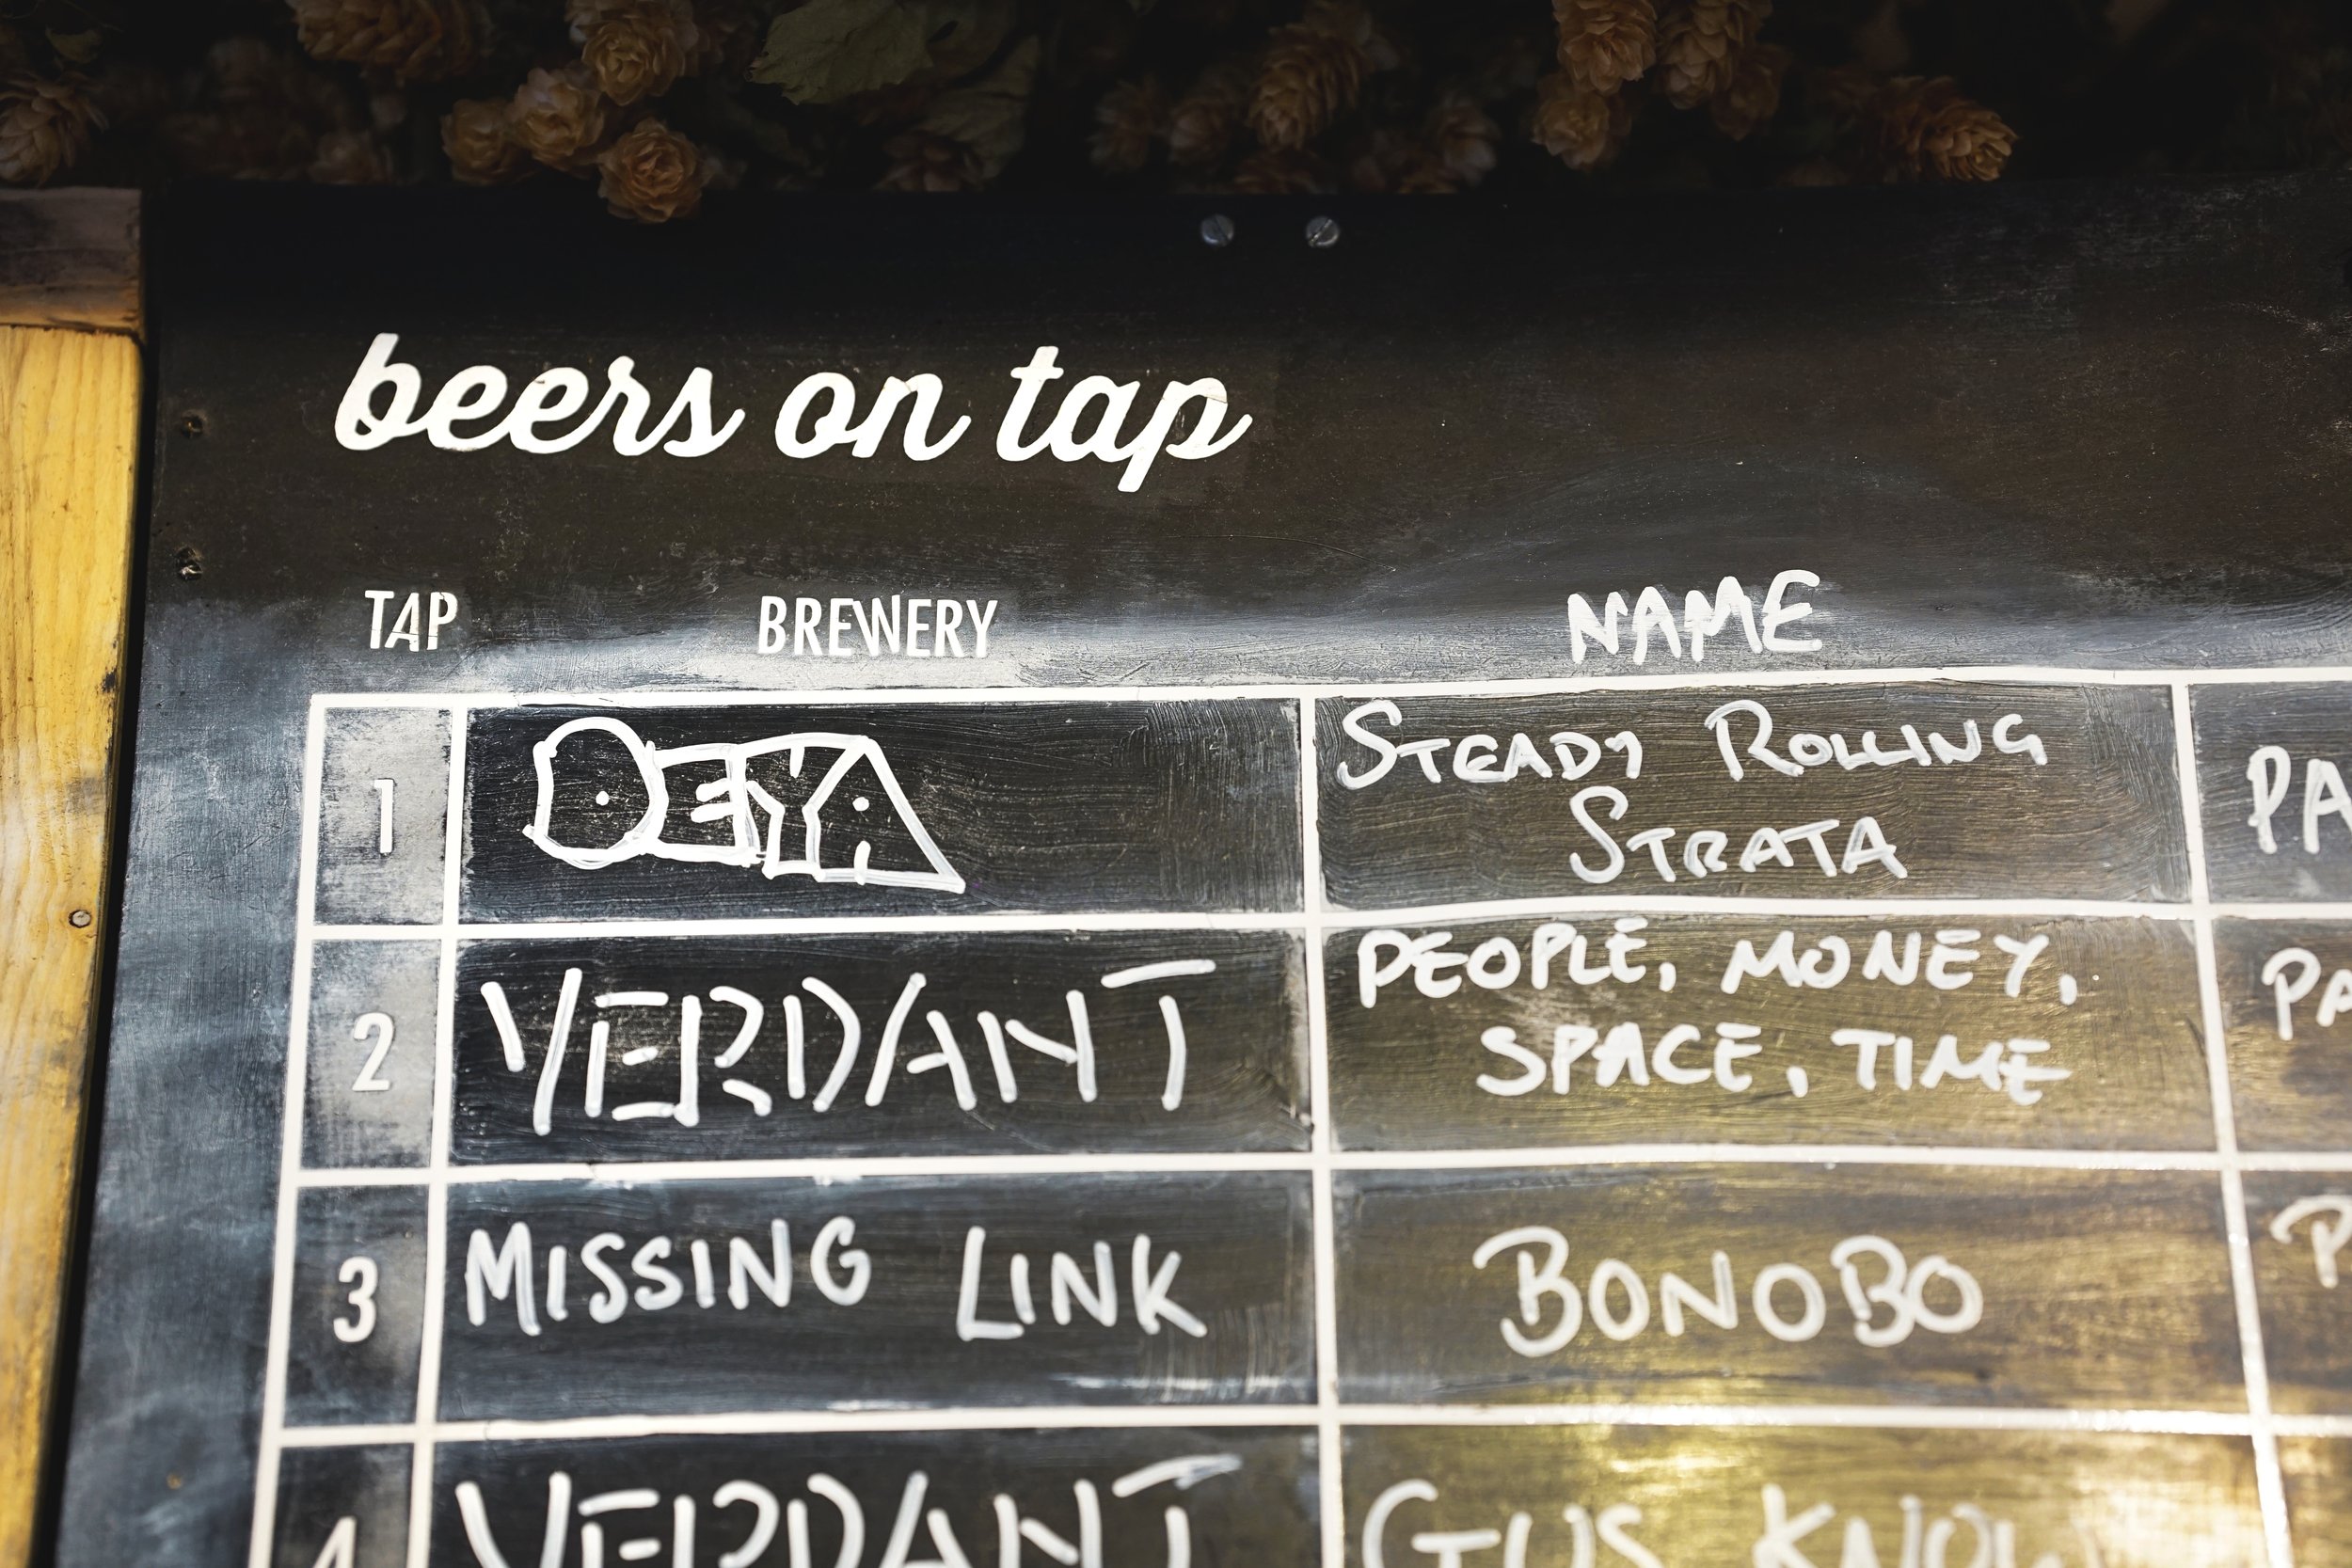 beers on tap
TAP BREWERY NAME
1 DEYA STEADY ROLLING
STRATA
PA
2 VERDANT PEOPLE, MONEY,
SPACE, TIME
PA
3 MISSING LINK BONOBO
P
4 VERDANT GUS KNOW